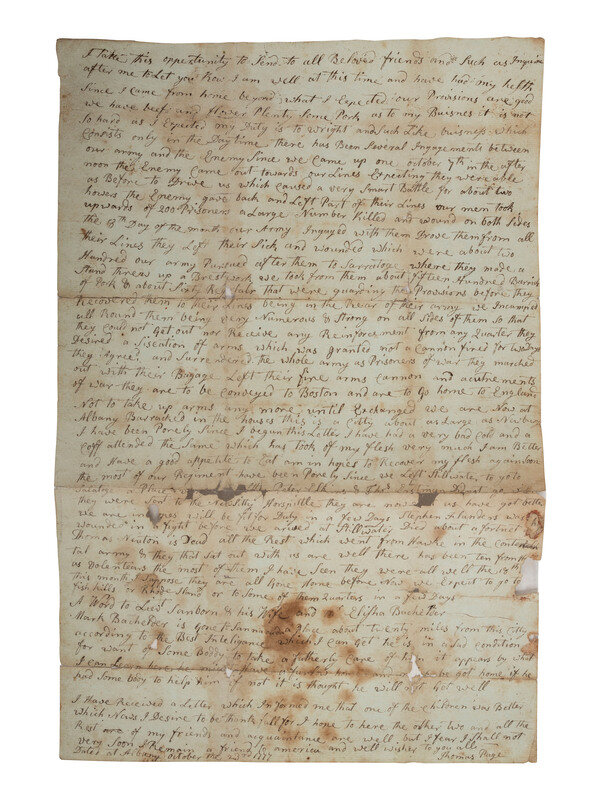 I take this oppertunity to Send to all Beloved friends and Such as Inquire
after me to Let you know I am well at this time and have had my helth
Since I came from home beyond what I Expected our Provisions are good
we have beef and flower Plenty, Some Pork as to my Buisnes it is not
So hard as I Expected my Duty is to wright and such Like buisness which
Consists only in the Daytime there has Been Several Ingagements between
our army and the Enemy Since we Came up one october 7th in the after
noon they Enemy Came out towards our Lines Expecting they were able
as Before to Drive us which caused a very Smart Battle for about two
howers the Enemy gave back and Left Part of their Lines our men took
upwards of 200 Prisoners a Large Number Killed and wound on both Sides
the Day of the month our Army Ingaged with them Drove them from all
their Lines they Left their Sick and wounded which were about two
Hundred our army Pursued after them to where they made a
Stand threw up a Brestwork we took from them about fifteen Hundred Barrils
of Pork & about Sixty that were guarding the Provisions before they
Recovered them to their Lines being in the Rear of their army we Incamped
all Round them being very Numerous & Strong on all Sides of them So that
they Could not Get out nor Receive any Reinforcement from any Quarter they
Desired a of arms which was granted not a Cannon fired for two Days
they Agreed and Surrendered the whole army as Prisoners of war they marched
out with their Bagage Left their fire arms Cannon and
of war they are to be Conveyed to Boston and are to Go home to England
Not to take up arms any more until Exchanged we are Now at
Albany Barracked in the houses this is a Citty about as Large as
I have been Poorly Since I begun this Letter I have had a very bad Cold and a
Coff attended the Same which has took of my flesh very much I am Better
and Have a good appetite to Eat am in hopes to Recover my flesh again Soon
the most of our Regiment have been Poorly Since we Left Stillwater to go to
a Place
they were Sent to the Hospittle they are now with us have got better
we are in will be fit for Duty in a few Days Stephen Flanders was
wounded in a fight before we arived at Stillwater Died about a fortnit
Thomas is Dead all the Rest which went from Hawke in the Contenen
tal army & they that Sot out with us are well there has been ten from
as Volenteers the most of them I have Seen they were all well the 18th
this month Suppose they are all Gone Home before Now we Expect to go to
fish kills or Rhode Island or to Some of them Quarters in a few Days
A Word to Lieut Sanborn & his Wife and to Elisha Bachelder
Mark Bachelder is Gone to a Place about twenty miles from this Citty
according to the Best Inteligance which I can get he is in a Sad Condition
for want of Some Boddy to take a futherly Care of him it appears by what
I can Learn here he be got home if he
had Some Body to help him if not it is thought he will not Get well
I have Received a Letter which Informed me that one of the Children was Better
which News I Desire to be thankfull for I hope to here the other two and all the
Rest of my friends and acquaintance are well but I fear I Shall not
very Soon I Remain a friend to america and well wisher to you all
Dated at Albany October the 22nd 1777 Thomas Page